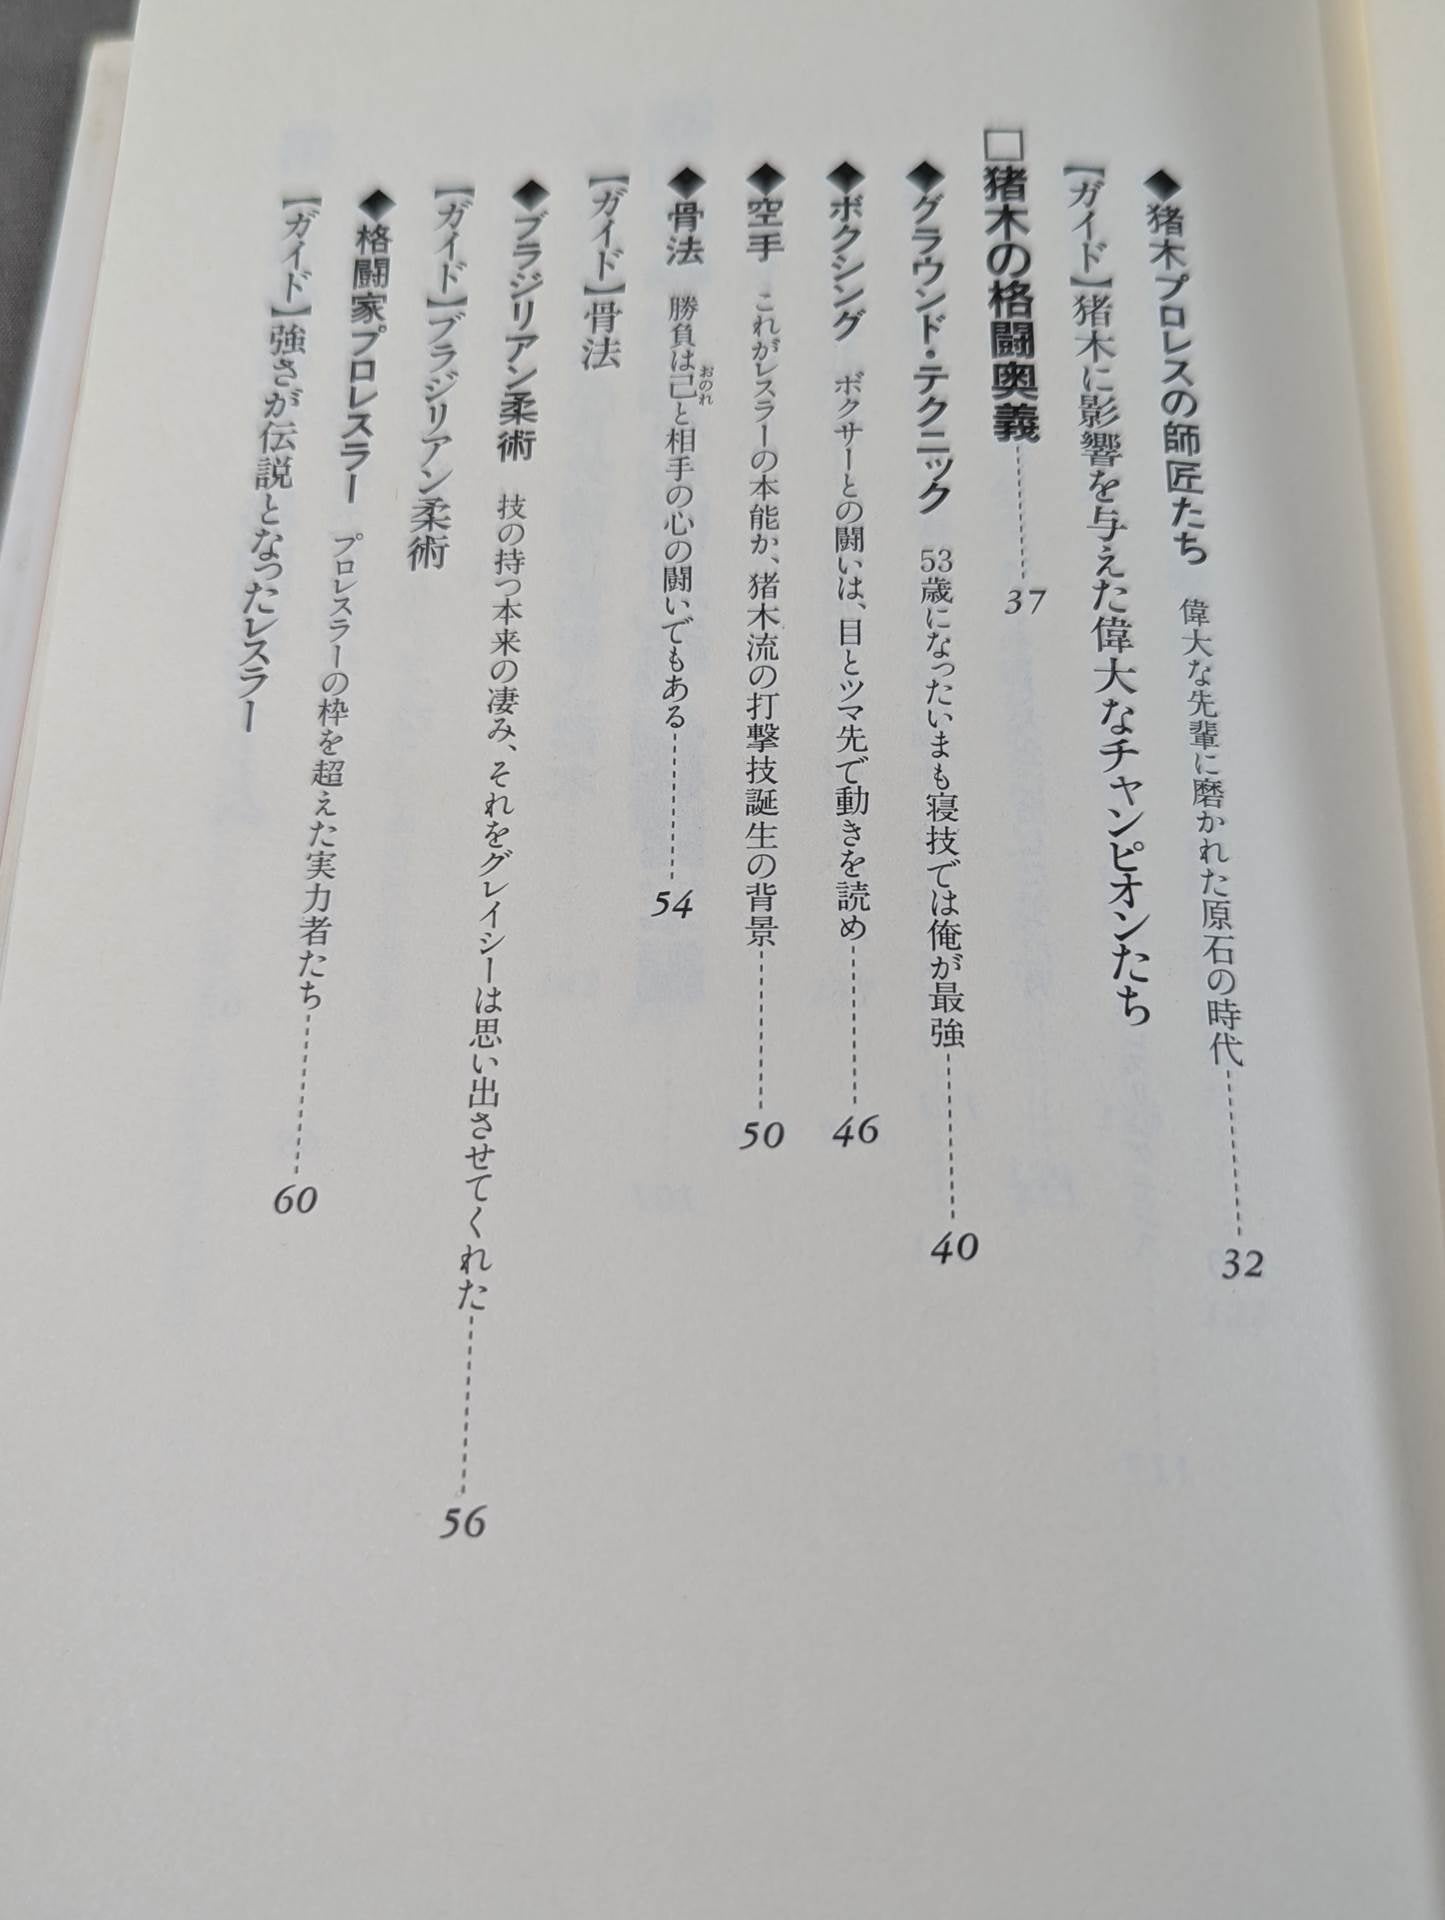 ◆猪木プロレスの師匠たち 偉大な先輩に磨かれた原石の時代 32
【ガイド】猪木に影響を与えた偉大なチャンピオンたち
□猪木の格闘奥義 37
◆グラウンド・テクニック 53歳になったいまも寝技では俺が最強 40
◆ボクシング ボクサーとの闘いは、目とツマ先で動きを読め 46
◆空手 これがレスラーの本能か、猪木流の打撃技誕生の背景 50
◆骨法 勝負は己と相手の心の闘いでもある 54
おのれ
【ガイド】骨法
◆ブラジリアン柔術 技の持つ本来の凄み、それをグレイシーは思い出させてくれた 56
【ガイド】ブラジリアン柔術
◆格闘家プロレスラー プロレスラーの枠を超えた実力者たち 60
【ガイド】強さが伝説となったレスラー